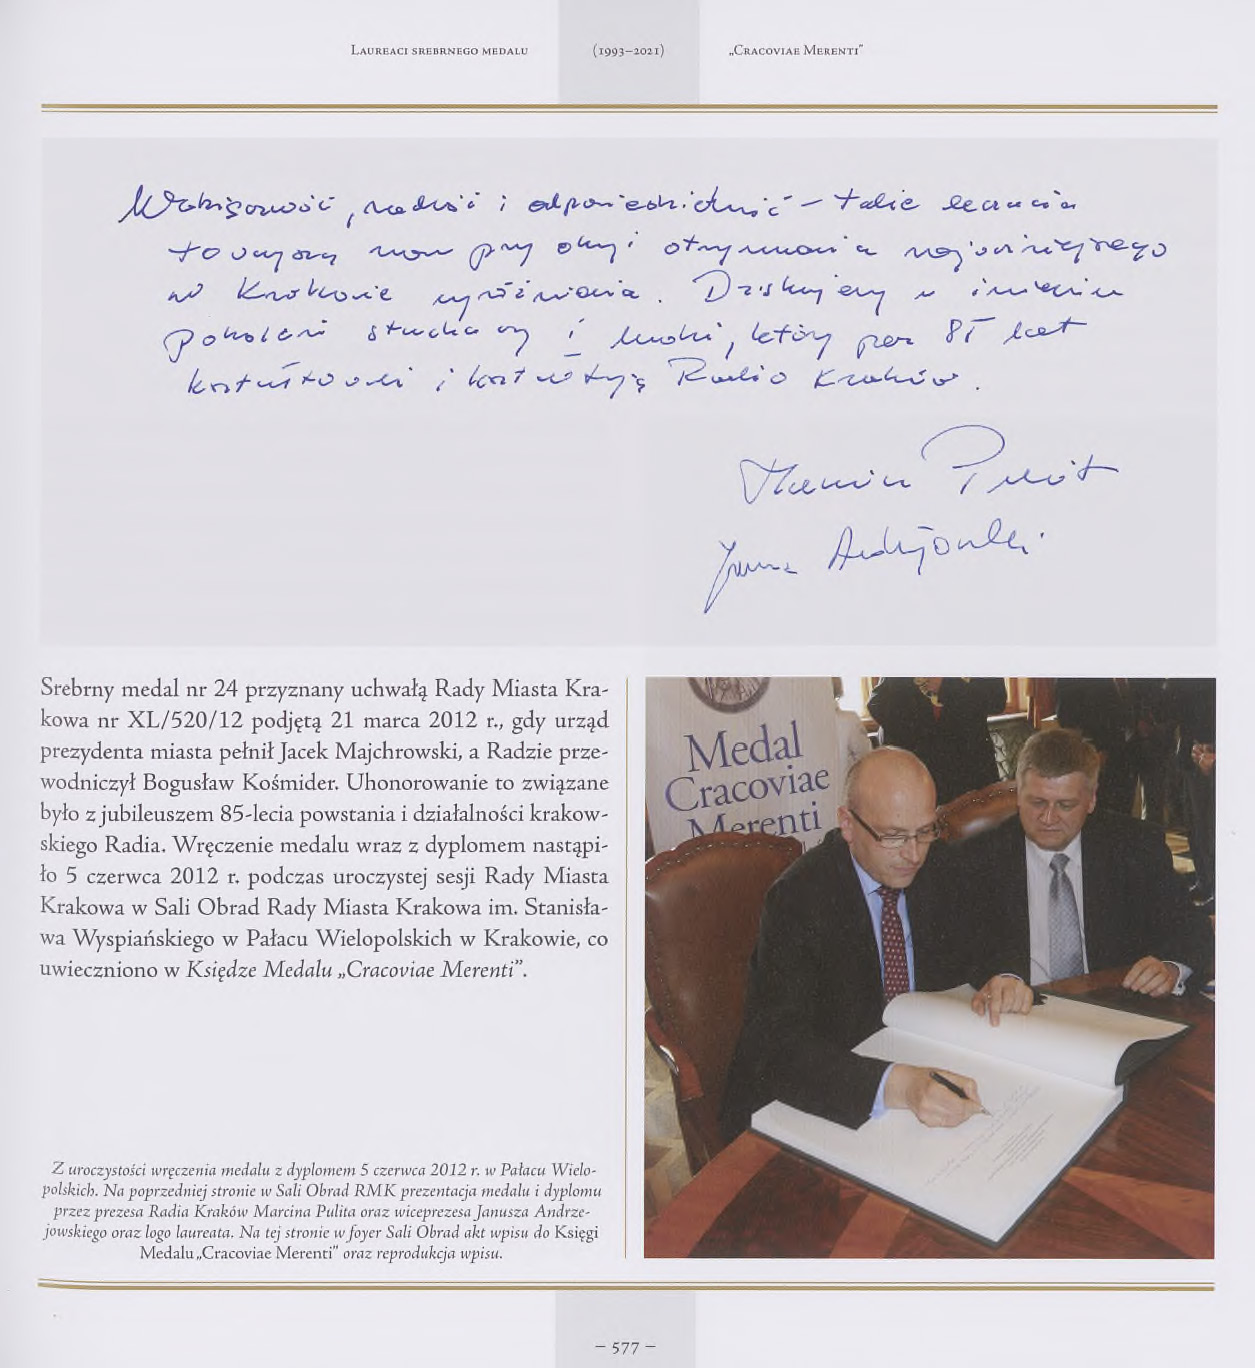 LAUREACI SREBRNEGO MEDALU (1993–2021) „CRACOVIAE MERENTI”
Wdzięczność, radość i odpowiedzialność – takie uczucia
towarzyszą nam przy okazji otrzymania najważniejszego
w Krakowie wyróżnienia. Dziękujemy w imieniu
pokoleń słuchaczy i ludzi, którzy przez 85 lat
kształtowali i kształtują Radio Kraków.
Marcin Pulit
Janusz Andrzejowski
Srebrny medal nr 24 przyznany uchwałą Rady Miasta Kra-
kowa nr XL/520/12 podjętą 21 marca 2012 r., gdy urząd
prezydenta miasta pełnił Jacek Majchrowski, a Radzie prze-
wodniczył Bogusław Kośmider. Uhonorowanie to związane
było z jubileuszem 85-lecia powstania i działalności krakow-
skiego Radia. Wręczenie medalu wraz z dyplomem nastąpi-
ło 5 czerwca 2012 r. podczas uroczystej sesji Rady Miasta
Krakowa w Sali Obrad Rady Miasta Krakowa im. Stanisła-
wa Wyspiańskiego w Pałacu Wielopolskich w Krakowie, co
uwieczniono w Księdze Medalu „Cracoviae Merenti”.
Medal
Cracoviae
Merenti
Z uroczystości wręczenia medalu z dyplomem 5 czerwca 2012 r. w Pałacu Wielo-
polskich. Na poprzedniej stronie w Sali Obrad RMK prezentacja medalu i dyplomu
przez prezesa Radia Kraków Marcina Pulita oraz wiceprezesa Janusza Andrze-
jowskiego oraz logo laureata. Na tej stronie w foyer Sali Obrad akt wpisu do Księgi
Medalu „Cracoviae Merenti” oraz reprodukcja wpisu.
– 577 –